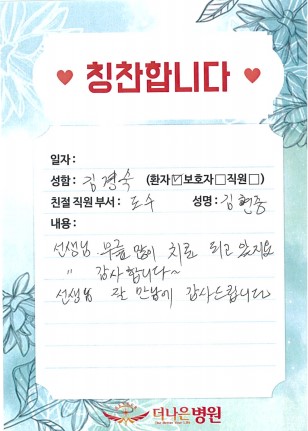 칭찬합니다
일자:
성함: 김경숙 (환자☑보호자□직원□)
친절 직원 부서: 도수 성명: 김현중
내용:
선생님 무릎 많이 치료 되고 있지요
〃 감사합니다~
선생님 잘 만남에 감사드립니다
더나은병원